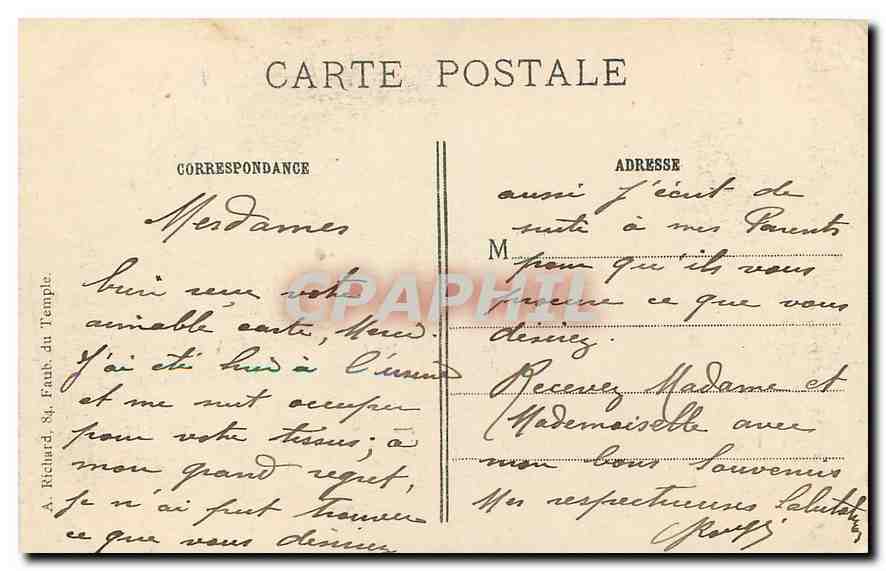 CARTE POSTALE
CORRESPONDANCE
Mesdames
bien reçu votre
aimable carte, Merci.
J'ai été hier à l'usine
et me suit occuper
pour votre tissus; à
mon grand regret,
Je n'ai put trouver
ce que vous désiriez
ADRESSE
aussi J'écrit de
suite à mes Parents
M
pour qu'ils vous
ce que vous
désiriez.
Recevez Madame et
Mademoiselle avec
mon bons Souvenirs
Mes respectueuses Salutations
A. Richard, 84, Faub. du Temple.
CPAPHIL